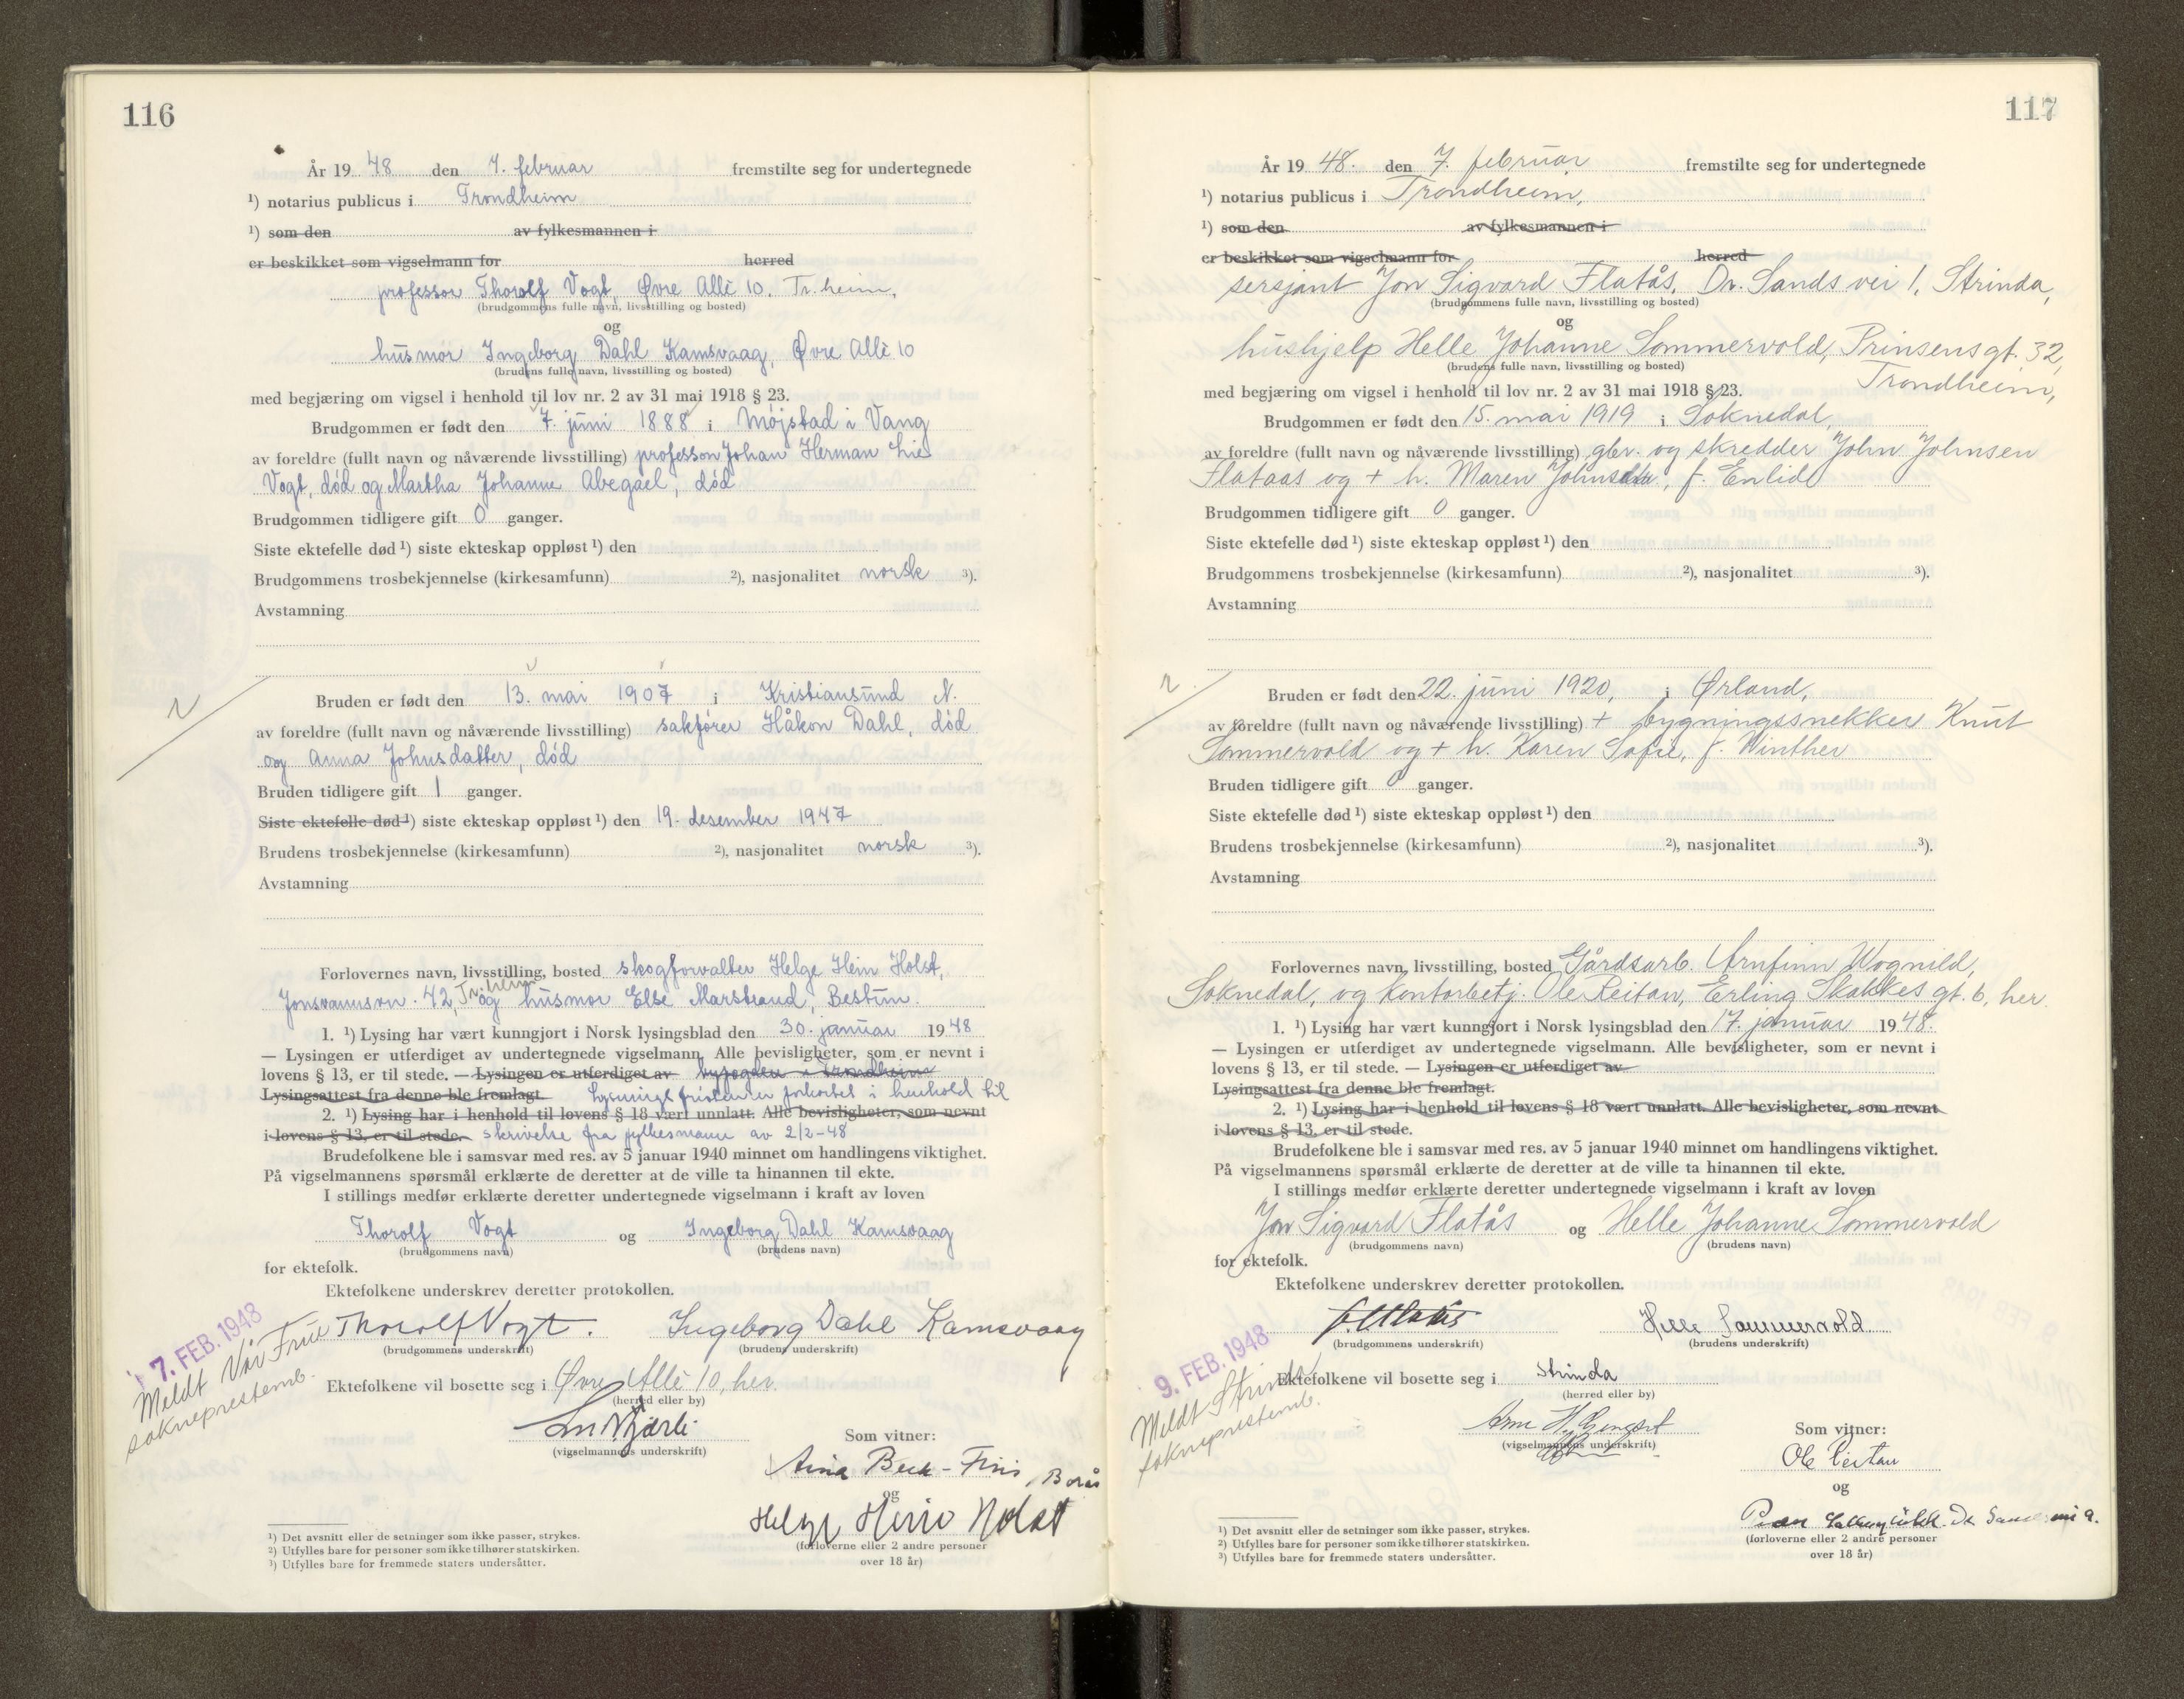 116
År 19 48 den 7. februar fremstilte seg for undertegnede
¹) notarius publicus i Trondheim
¹) som den av fylkesmannen i
er beskikket som vigselmann for herred
professor Thorolf Vogt, Øvre Allè 10. Tr.heim,
(brudgommens fulle navn, livsstilling og bosted)
og
husmor Ingeborg Dahl Kamsvaag, Øvre Allè 10
(brudens fulle navn, livsstilling og bosted)
med begjæring om vigsel i henhold til lov nr. 2 av 31 mai 1918 § 23.
Brudgommen er født den 7. juni 1888 i Møjstad i Vang
av foreldre (fullt navn og nåværende livsstilling) professor Johan Herman Lie
Vogt, død og Martha Johanne Abegael, død
Brudgommen tidligere gift 0 ganger.
Siste ektefelle død ¹) siste ekteskap oppløst ¹) den
Brudgommens trosbekjennelse (kirkesamfunn) ²), nasjonalitet norsk ³).
Avstamning
Bruden er født den 13. mai 1907 i Kristiansund N.
av foreldre (fullt navn og nåværende livsstilling) sakfører Håkon Dahl, død
og Anna Johnsdatter, død
Bruden tidligere gift 1 ganger.
Siste ektefelle død ¹) siste ekteskap oppløst ¹) den 19. desember 1947
Brudens trosbekjennelse (kirkesamfunn) ²), nasjonalitet norsk ³).
Avstamning
Forlovernes navn, livsstilling, bosted skogforvalter Helge Hein Holst,
Jonsvannsvn. 42, Tr.heim og husmor Else Marstrand, Bestum.
1. ¹) Lysing har vært kunngjort i Norsk lysingsblad den 30. januar 1948
— Lysingen er utferdiget av undertegnede vigselmann. Alle bevisligheter, som er nevnt i
lovens § 13, er til stede. — Lysingen er utferdiget av byfogden i Trondheim
Lysingsattest fra denne ble fremlagt. Lysningsfristen er forkortet i henhold til
2. ¹) Lysing har i henhold til lovens § 18 vært unnlatt. Alle bevisligheter, som nevnt
i lovens § 13, er til stede. skrivelse fra fylkesmann av 2/2-48
Brudefolkene ble i samsvar med res. av 5 januar 1940 minnet om handlingens viktighet.
På vigselmannens spørsmål erklærte de deretter at de ville ta hinannen til ekte.
I stillings medfør erklærte deretter undertegnede vigselmann i kraft av loven
Thorolf Vogt og Ingeborg Dahl Kamsvaag
(brudgommens navn) (brudens navn)
for ektefolk.
Ektefolkene underskrev deretter protokollen.
Thorolf Vogt. Ingeborg Dahl Kamsvaag
(brudgommens underskrift) (brudens underskrift)
7. FEB. 1948
Meldt Vår Frue
sokneprestemb.
Ektefolkene vil bosette seg i Øvre Allè 10, her.
(herred eller by)
(vigselmannens underskrift)
Som vitner:
Beck-Friis, Borås
og
Helge Hein Holst
(forloverne eller 2 andre personer
over 18 år)
¹) Det avsnitt eller de setninger som ikke passer, strykes.
²) Utfylles bare for personer som ikke tilhører statskirken.
³) Utfylles bare for fremmede staters undersåtter.
117
År 19 48. den 7. februar fremstilte seg for undertegnede
¹) notarius publicus i Trondheim,
¹) som den av fylkesmannen i
er beskikket som vigselmann for herred
sersjant Jon Sigvard Flatås, Dr. Sands vei 1, Strinda,
(brudgommens fulle navn, livsstilling og bosted)
og
hushjelp Helle Johanne Sommervold, Prinsensgt. 32,
(brudens fulle navn, livsstilling og bosted)
Trondheim,
med begjæring om vigsel i henhold til lov nr. 2 av 31 mai 1918 § 23.
Brudgommen er født den 15. mai 1919 i Soknedal,
av foreldre (fullt navn og nåværende livsstilling) gbr. og skredder John Johnsen
Flataas og + h. Maren , f. Enlid
Brudgommen tidligere gift 0 ganger.
Siste ektefelle død ¹) siste ekteskap oppløst ¹) den
Brudgommens trosbekjennelse (kirkesamfunn) ²), nasjonalitet ³).
Avstamning
Bruden er født den 22. juni 1920, i Ørland,
av foreldre (fullt navn og nåværende livsstilling) + bygningssnekker Knut
Sommervold og + h. Karen Sofie, f. Winther
Bruden tidligere gift 0 ganger.
Siste ektefelle død ¹) siste ekteskap oppløst ¹) den
Brudens trosbekjennelse (kirkesamfunn) ²), nasjonalitet ³).
Avstamning
Forlovernes navn, livsstilling, bosted Gårdsarb. Arnfinn Wognild,
Soknedal, og kontorbetj. Ole Reitan, Erling Skakkes gt. 6, her.
1. ¹) Lysing har vært kunngjort i Norsk lysingsblad den 17. januar 1948.
— Lysingen er utferdiget av undertegnede vigselmann. Alle bevisligheter, som er nevnt i
lovens § 13, er til stede. — Lysingen er utferdiget av
Lysingsattest fra denne ble fremlagt.
2. ¹) Lysing har i henhold til lovens § 18 vært unnlatt. Alle bevisligheter, som nevnt
i lovens § 13, er til stede.
Brudefolkene ble i samsvar med res. av 5 januar 1940 minnet om handlingens viktighet.
På vigselmannens spørsmål erklærte de deretter at de ville ta hinannen til ekte.
I stillings medfør erklærte deretter undertegnede vigselmann i kraft av loven
Jon Sigvard Flatås og Helle Johanne Sommervold
(brudgommens navn) (brudens navn)
for ektefolk.
Ektefolkene underskrev deretter protokollen.
Helle Sommervold
(brudgommens underskrift) (brudens underskrift)
9. FEB. 1948
Meldt Strinda
sokneprestemb.
Ektefolkene vil bosette seg i Strinda
(herred eller by)
(vigselmannens underskrift)
Som vitner:
Ole Reitan
og
(forloverne eller 2 andre personer
over 18 år)
¹) Det avsnitt eller de setninger som ikke passer, strykes.
²) Utfylles bare for personer som ikke tilhører statskirken.
³) Utfylles bare for fremmede staters undersåtter.